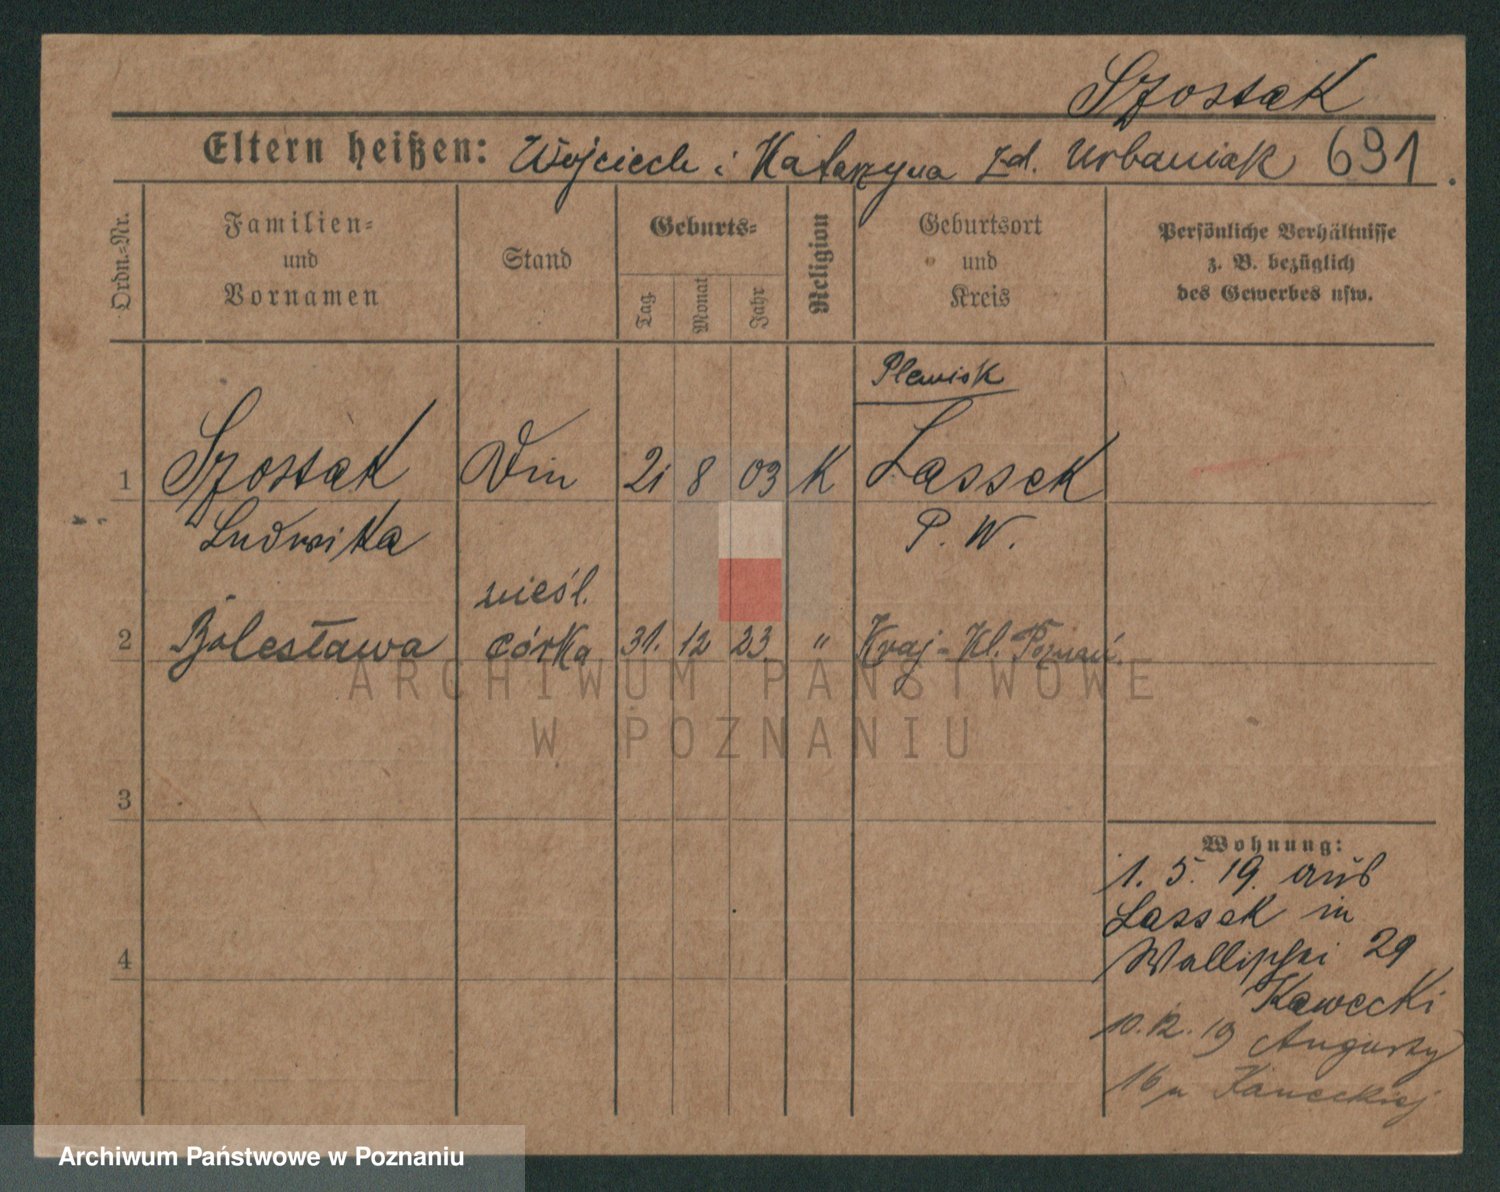 Szostak
Eltern heißen: Wojciech i Katarzyna zd. Urbaniak 691
Ordn.-Nr.
Familien-
und
Vornamen
Stand
Geburts-
Tag
Monat
Jahr
Religion
Geburtsort
und
Kreis
Persönliche Verhältnisse
z. B. bezüglich
des Gewerbes usw.
Plewisk
1 Szostak Din 21 8 03 K Lassek
Ludwika P. W.
nieśl.
2 Bolesława córka 31. 12 23 " Kraj-Kl. Poznań
3
4
Wohnung:
1. 5. 19. aus
Lassek in
Wallischei 29
Kawecki
10. 12. 19
16 Kaweckiej
ARCHIWUM PAŃSTWOWE
W POZNANIU
Archiwum Państwowe w Poznaniu